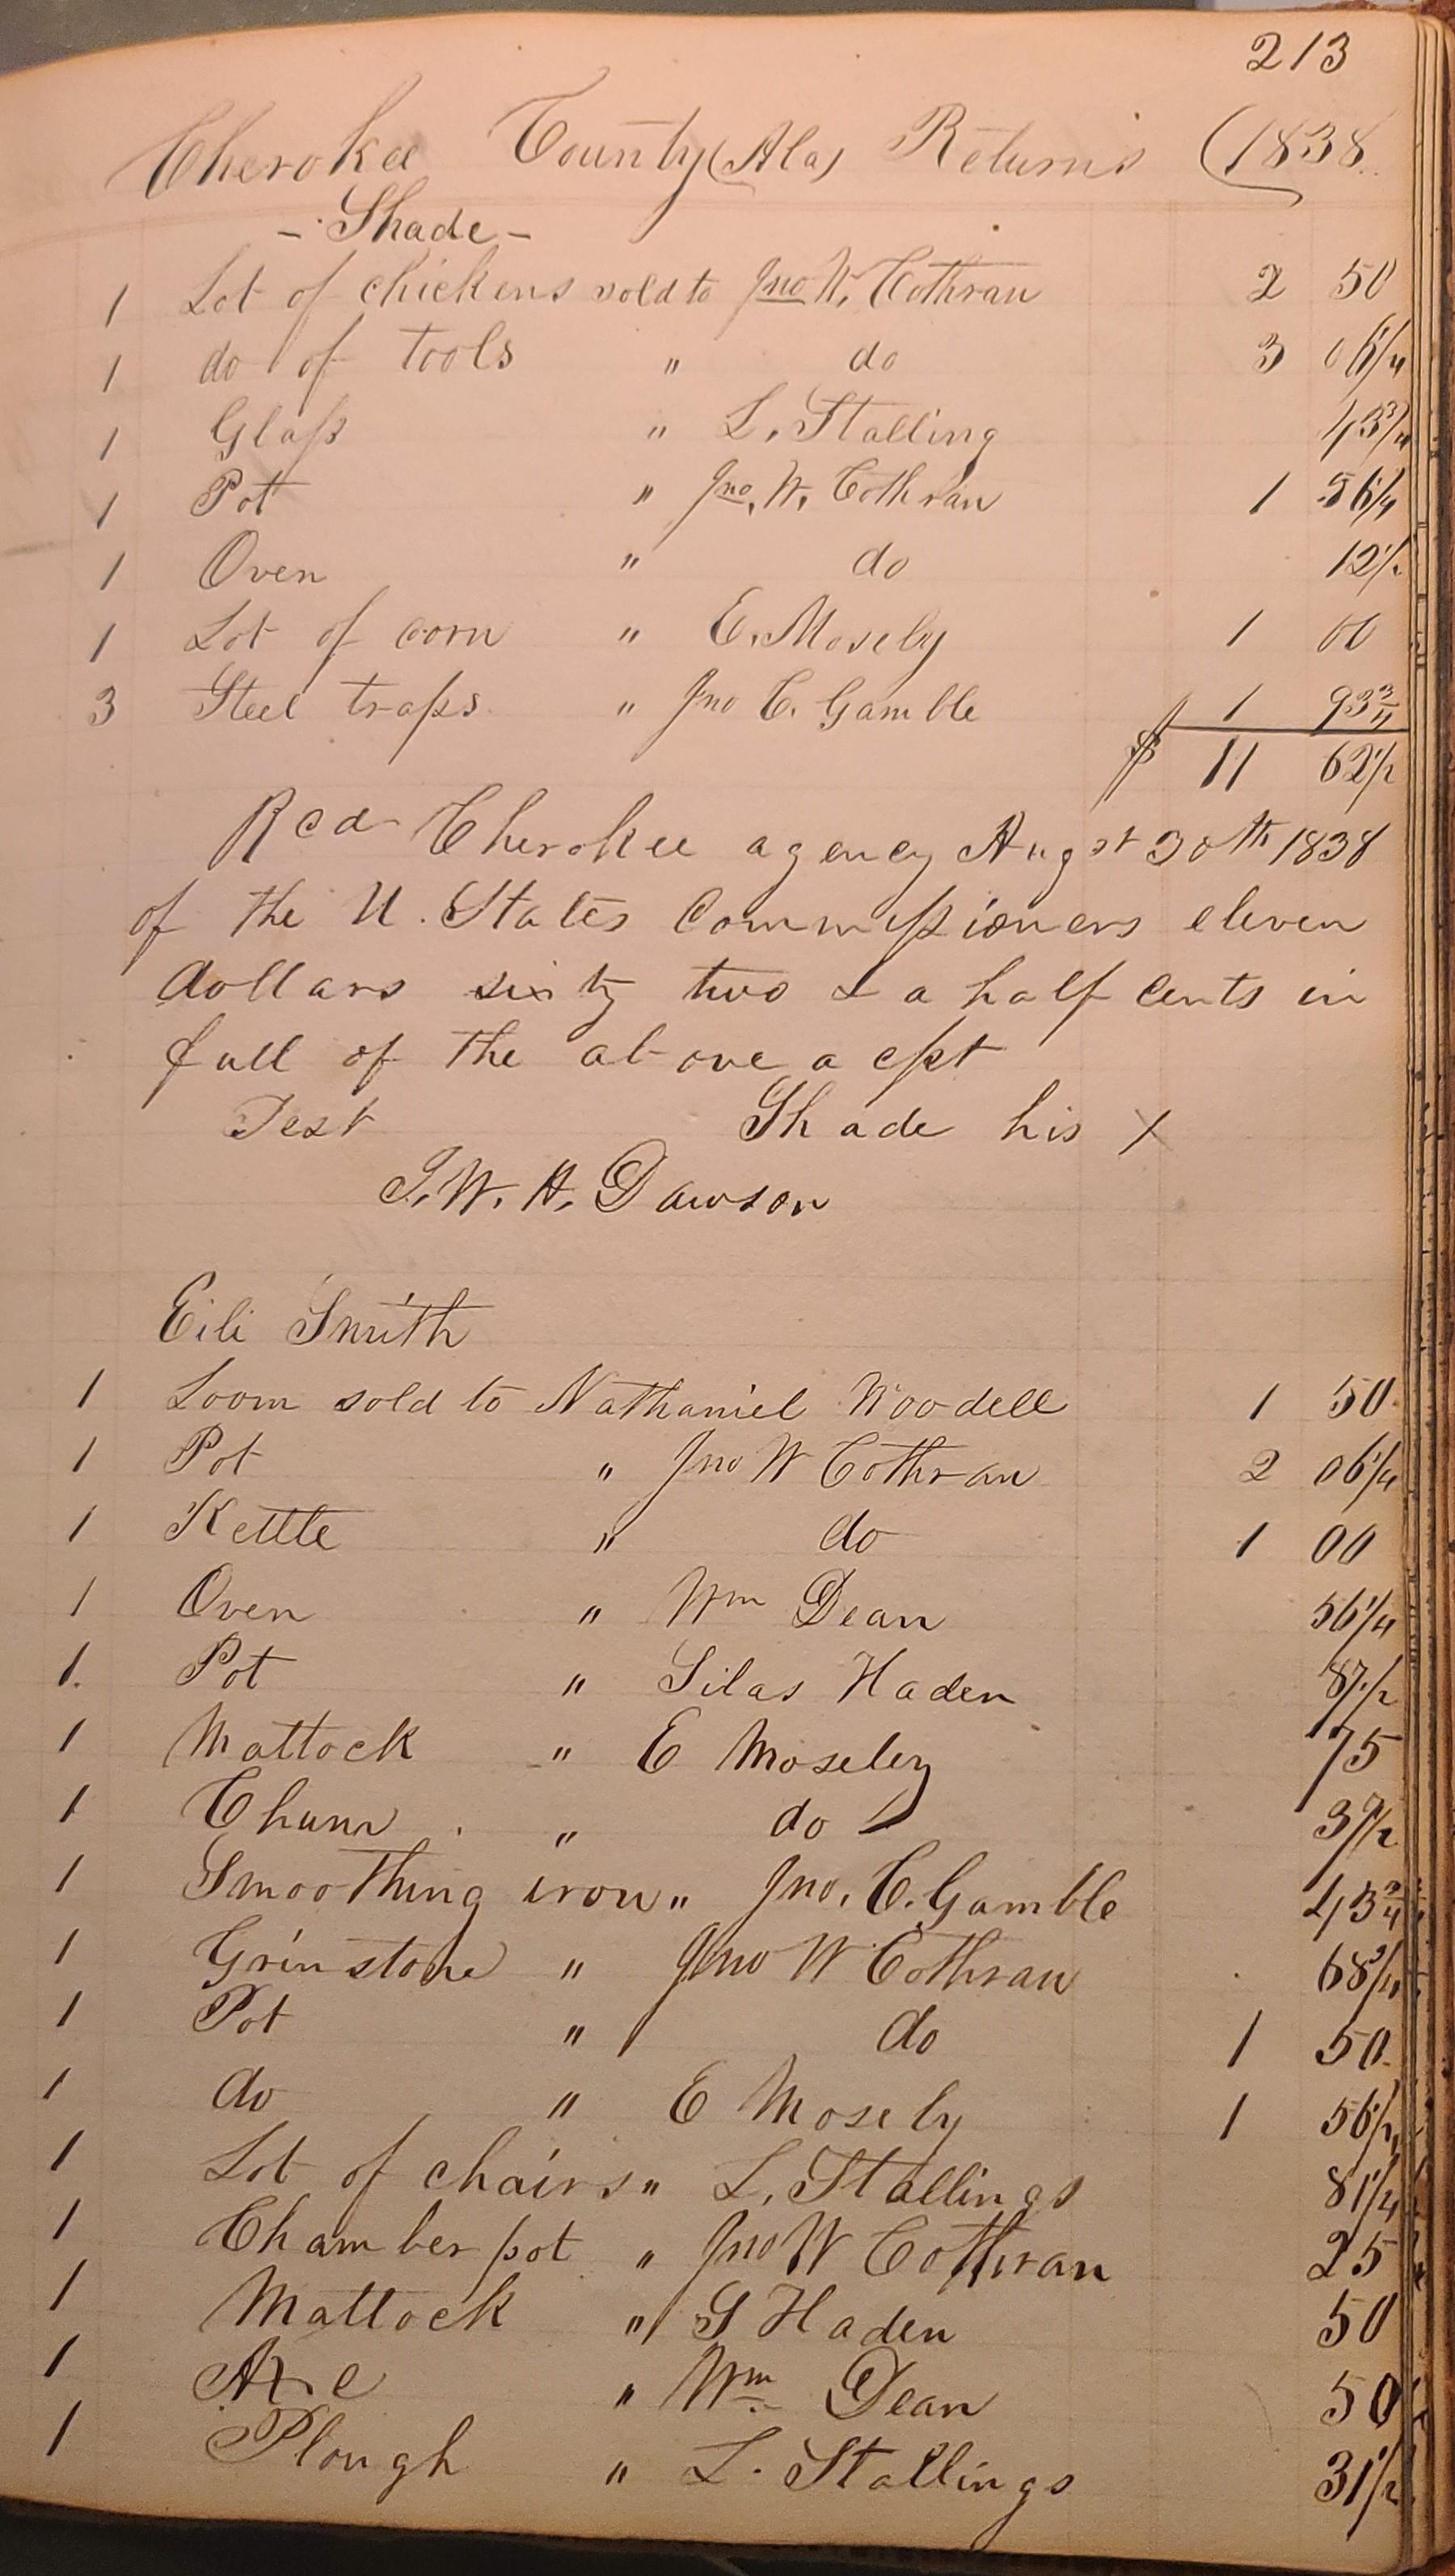 213
Cherokee County (Ala) Returns (1838.
- Shade -
1 Lot of chickens sold to Jno W. Cothran 2 50
1 do of tools " do 3 06 1/4
1 Glass " L. Stalling 43 3/4
1 Pot " Jno. W. Cothran 1 56 1/4
1 Oven " do 12 1/2
1 Lot of corn " E. Mosely 1 00
3 Steel traps " Jno C. Gamble 1 93 3/4
$ 11 62 1/2
Rcd Cherokee agency Augst 30th 1838
of the U. States Commissioners eleven
dollars sixty two & a half cents in
full of the above acpt
Test Shade his X
J. W. H. Dawson
Eili Smith
1 Loom sold to Nathaniel Woodell 1 50
1 Pot " Jno W Cothran 2 06 1/4
1 Kettle " do 1 00
1 Oven " Wm Dean 56 1/4
1. Pot " Silas Haden 87 1/2
1 Mattock " E Moseley 75
1 Churn " do 37 1/2
1 Smoothing iron " Jno. C. Gamble 43 3/4
1 Grinstone " Jno W Cothran 68 3/4
1 Pot " do 1 50
1 do " E Mosely 1 56 1/2
1 Lot of chairs " L. Stallings 81 1/4
1 Chamber pot " Jno W Cothran 25
1 Mattock " S Haden 50
1 Axe " Wm Dean 50
1 Plough " L. Stallings 31 1/2